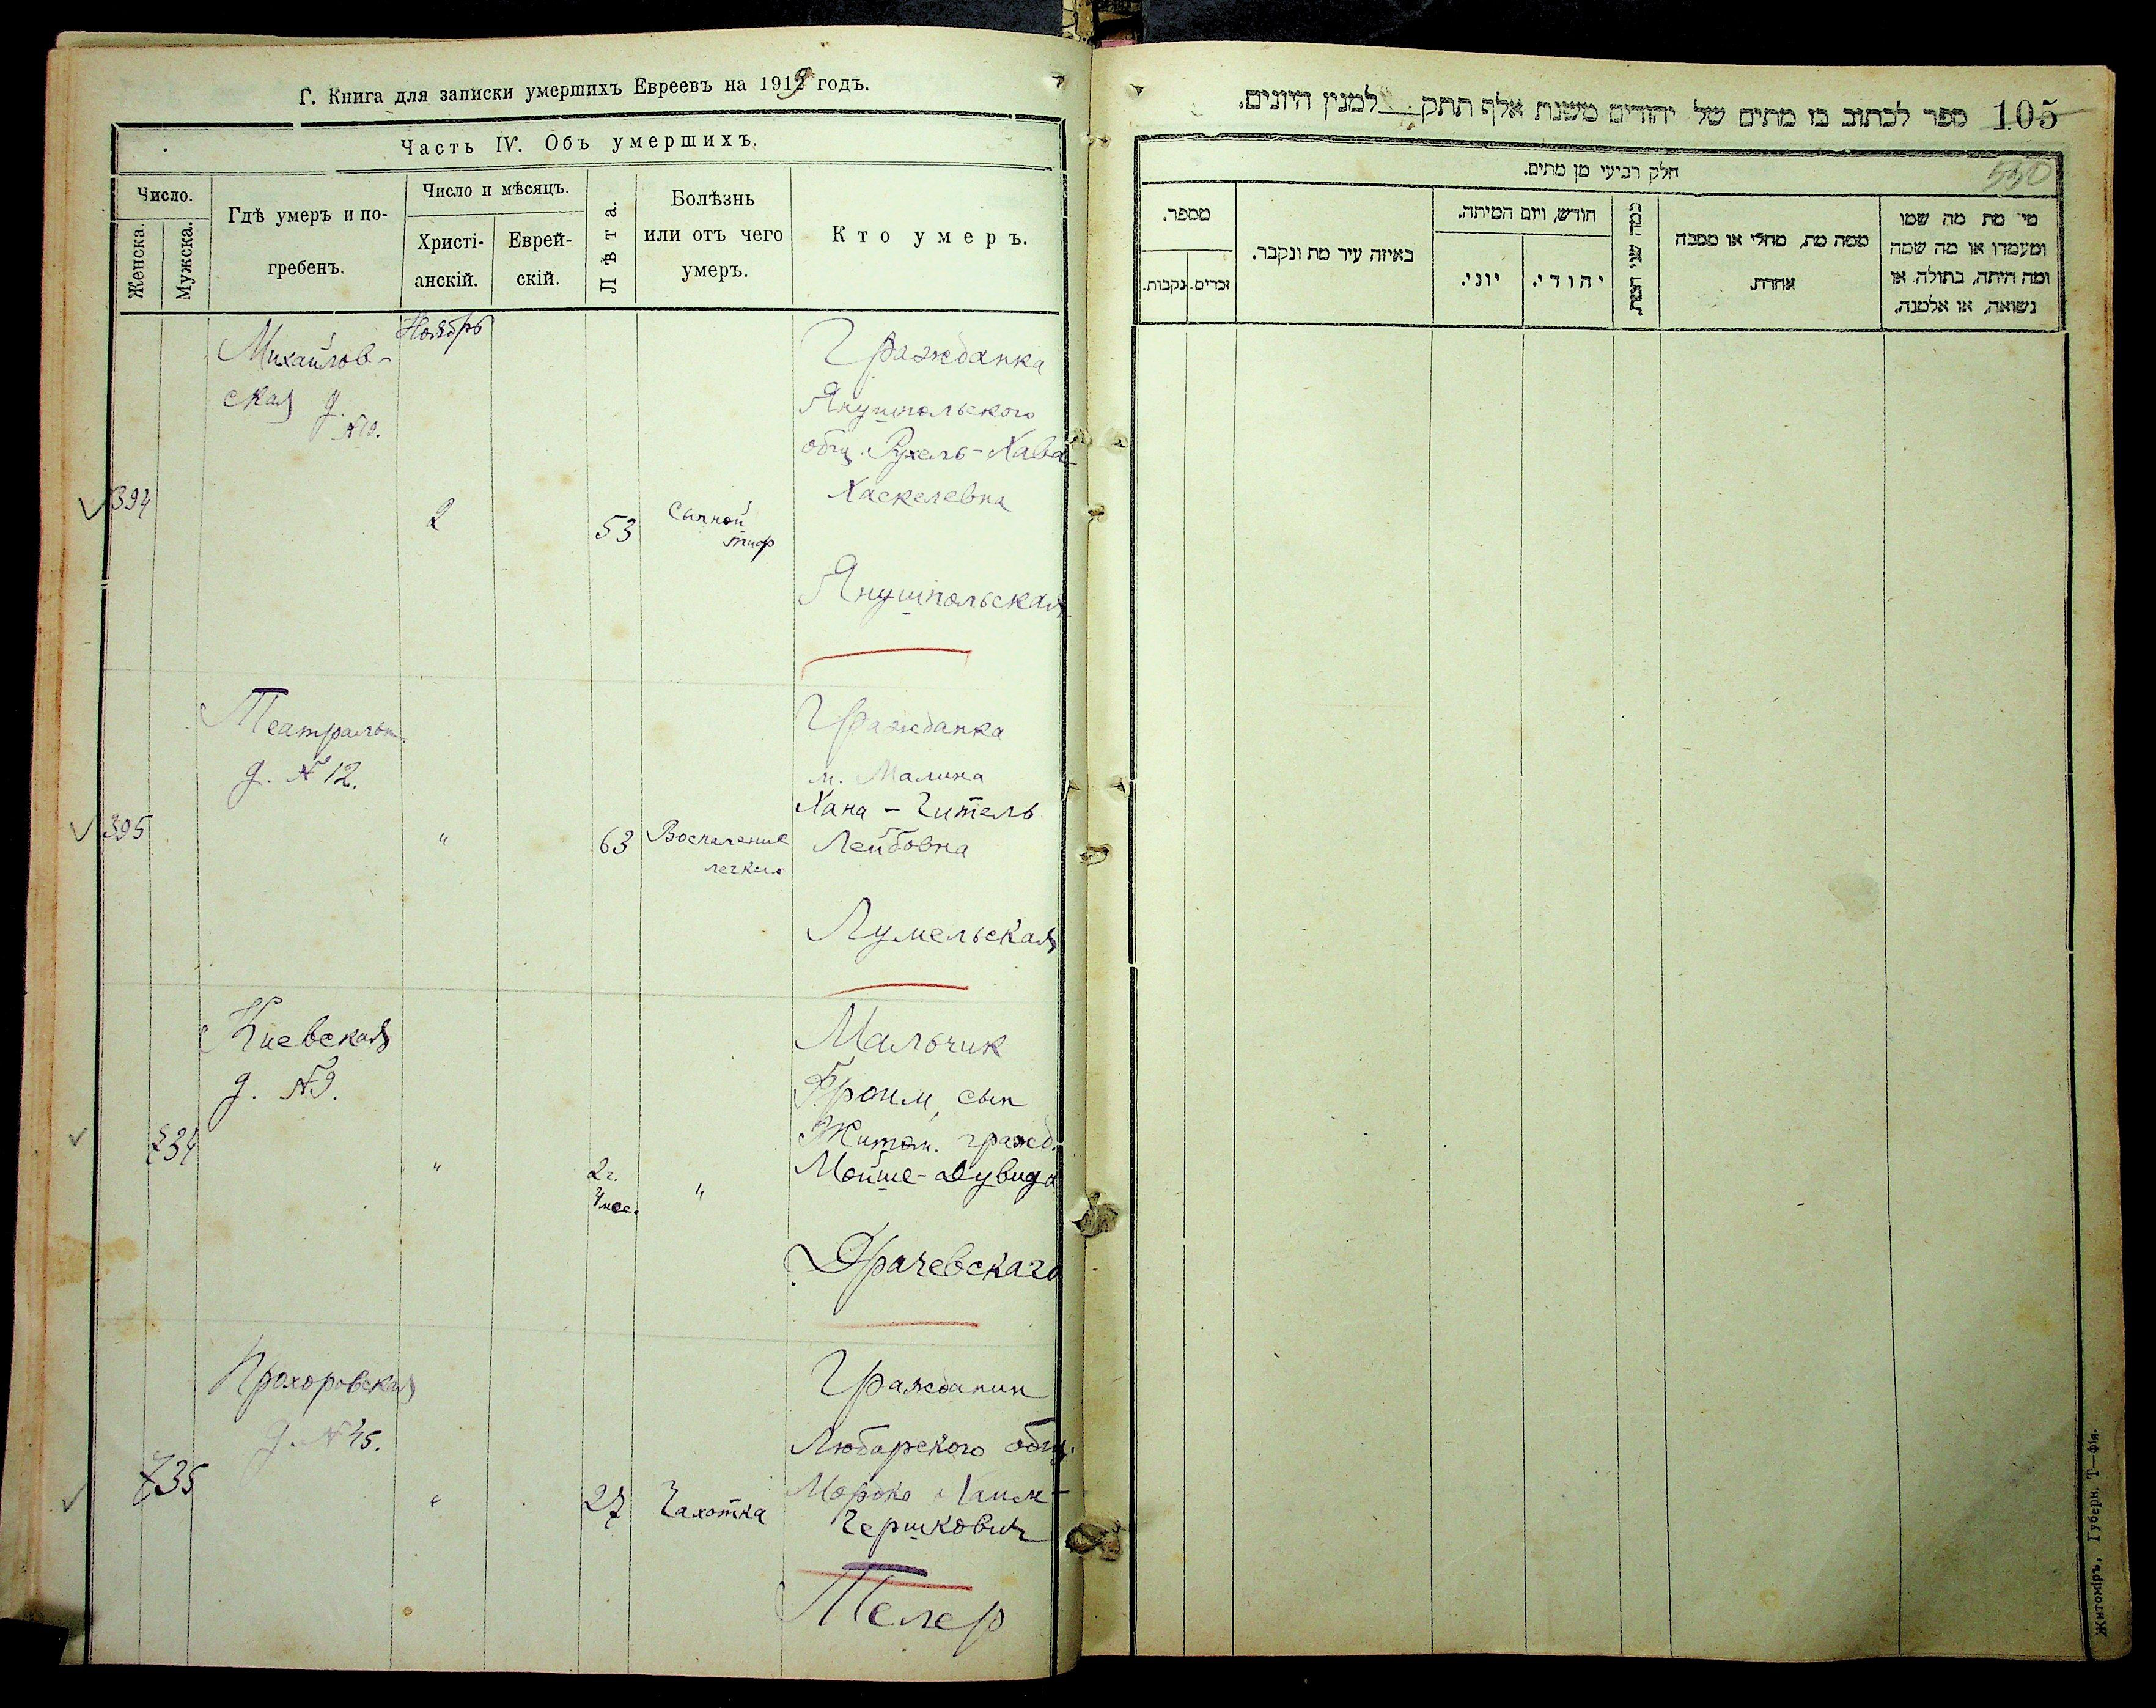 Г. Книга для записки умершихъ Евреевъ на 1919 годъ.
Часть IV. Объ умершихъ.
Число.
Женска.
Мужска.
Гдѣ умеръ и по-
гребенъ.
Число и мѣсяцъ.
Христі-
анскій.
Еврей-
скій.
Лѣта.
Болѣзнь
или отъ чего
умеръ.
Кто умеръ.
Ноябрь
Михайлов-
ская д.
394
2
53
Сыпной
тиф
Гражданка
Янушпольского
общ. Рухель-Хава
Хаскелевна
Янушпольская
Театральн.
д. № 12.
395
"
63
Воспаление
легких
Гражданка
м. Малина
Хана - Гитель
Лейбовна
Лумельская
Киевская
д. №9.
734
"
2 г.
4 мес.
"
Мальчик
Фроим, сын
Житом. гражд.
Мойше-Дувида
Драчевскаго
Прохоровская
д. № 45.
735
"
27
Чахотка
Гражданин
Любарского общ.
Мордко Хаим-
Гершкович
Телер
105 ספר לכתוב בו מתים של יהודים משנת אלף תתק למנין היונים.
550
חלק רביעי מן מתים.
מספר.
נקבות.
זכרים.
באיזה עיר מת ונקבר.
חודש, ויום המיתה.
יוני.
יהודי.
כמה שני המת
ממה מת, מחלי או מסבה
אחרת.
מי מת מה שמו
ומעמדו או מה שמה
ומה היתה, בתולה, או
נשואה, או אלמנה.
Житоміръ, Губерн. Т—фія.